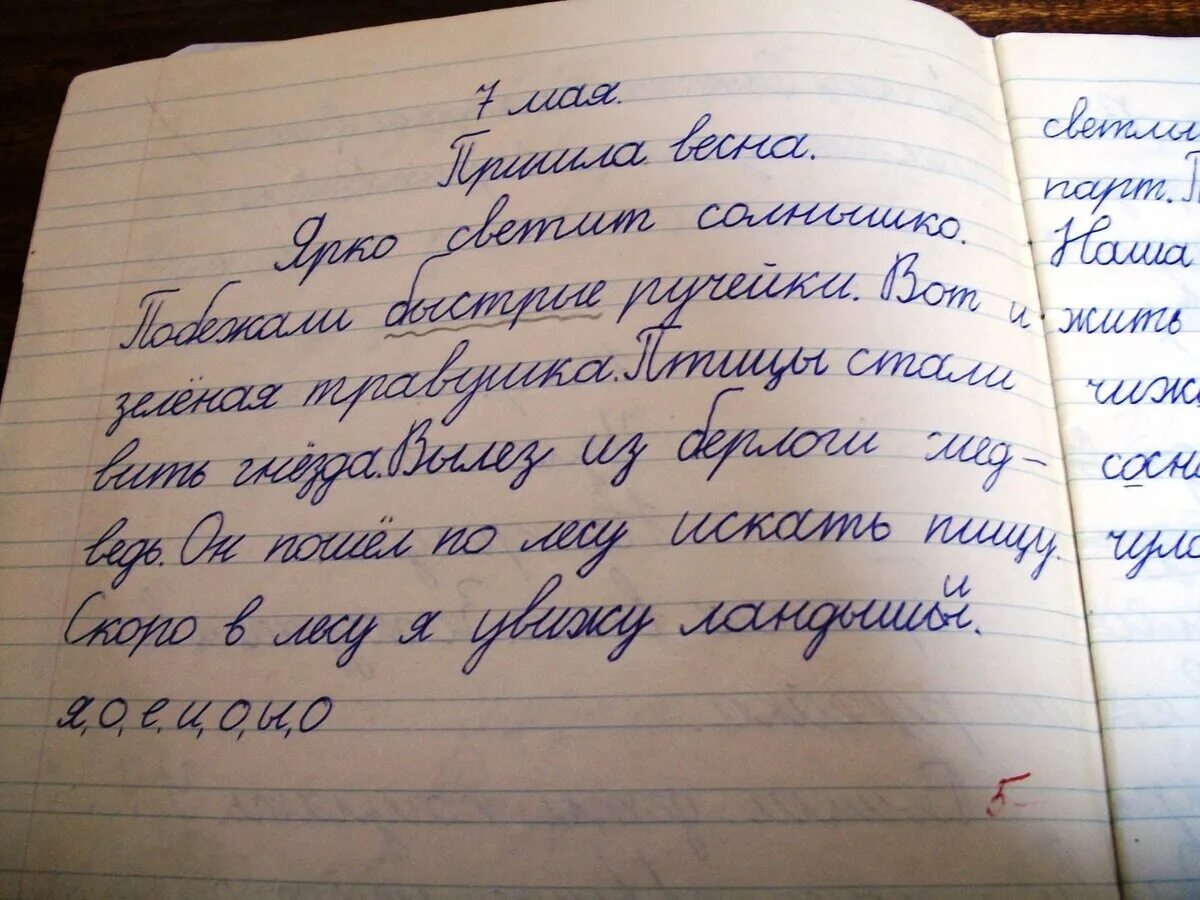 7 мая.
Пришла весна.
Ярко светит солнышко.
Побежали быстрые ручейки. Вот и
зелёная травушка. Птицы стали
вить гнёзда. Вылез из берлоги мед-
ведь. Он пошёл по лесу искать пищу.
Скоро в лесу я увижу ландышы.
и
я, о, е, и, о, ы, о
5-
парт. П
Наша
жить